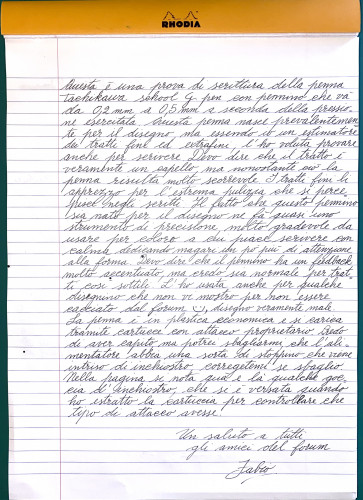 RHODIA
Questa è una prova di scrittura della penna
tachikawa school G pen con pennino che va
da 0,2 mm a 0,5 mm a seconda della pressio-
ne esercitata. Questa penna nasce prevalentemen-
te per il disegno, ma essendo io un estimatore
dei tratti fini ed extrafini, l'ho voluta provare
anche per scrivere. Devo dire che il tratto è
veramente un capello, ma nonostante ciò la
penna risulta molto scorrevole. I tratti fini li
apprezzo per l'estrema pulizia che si perce-
pisce negli scritti. Il fatto che questo pennino
sia nato per il disegno ne fa quasi uno
strumento di precisione, molto gradevole da
usare per coloro a cui piace scrivere con
calma dedicando magari un po' più di attenzione
alla forma. Devo dire che il pennino ha un feedback
molto accentuato, ma credo sia normale per trat-
ti così sottili. L'ho usata anche per qualche
disegnino che non vi mostro per non essere
cacciato dal forum, disegno veramente male.
La penna è in plastica economica e si carica
tramite cartucce con attacco proprietario. Credo
di aver capito, ma potrei sbagliarmi, che l'ali-
mentatore abbia una sorta di stoppino che viene
intriso di inchiostro, correggetemi se sbaglio.
Nella pagina si nota qua e là qualche goc-
cia d'inchiostro, che si è versata quando
ho estratto la cartuccia per controllare che
tipo di attacco avesse!
Un saluto a tutti
gli amici del forum
Fabio